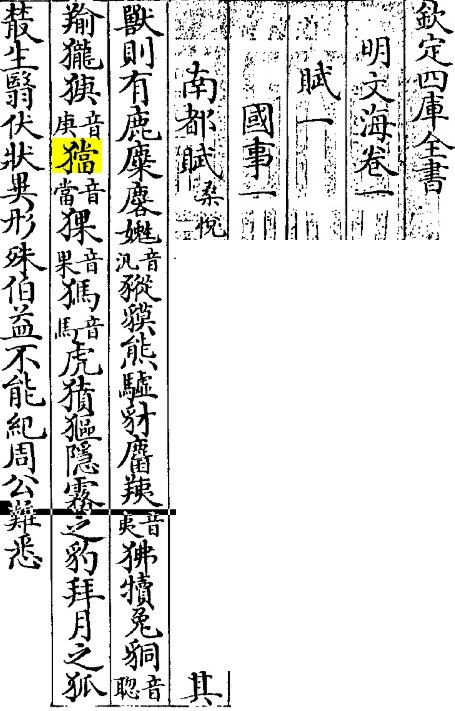 欽定四庫全書
明文海卷一
賦一
國事一
南都賦 桑悅 其
獸則有鹿麋麏音汎豵貘熊驢豺麕羠音夷狒犢兔音聰
羭音庚音當猓音果獁音馬虎獖隱霧之豹拜月之狐
生翳伏狀異形殊伯益不能紀周公難悉